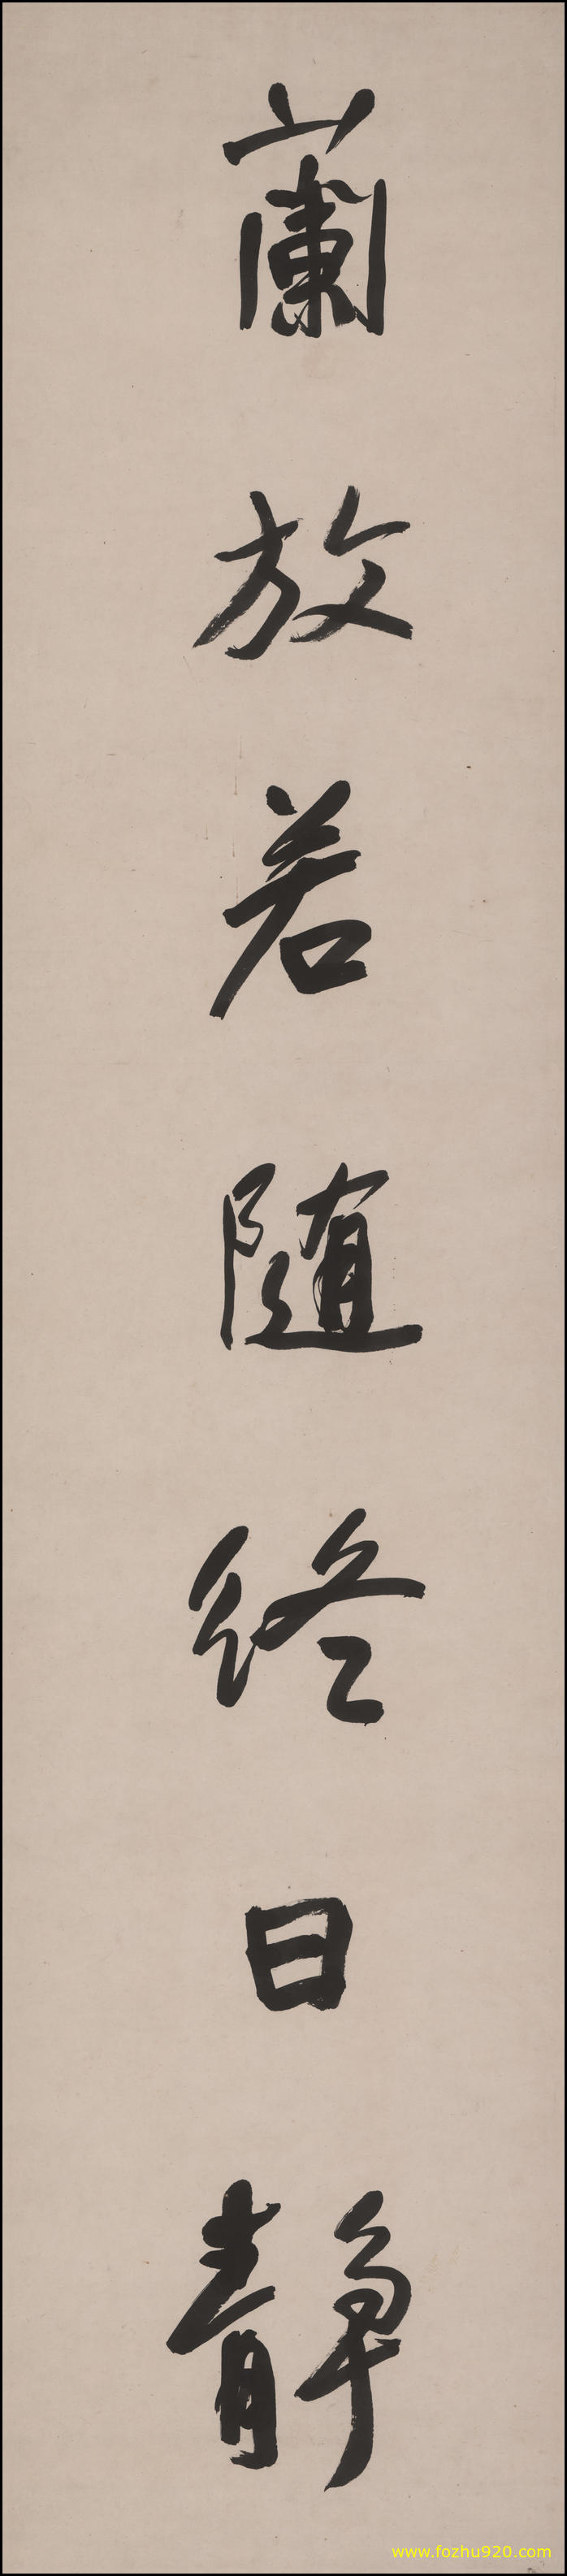 蘭放若随終日静
www.fozhu920.com